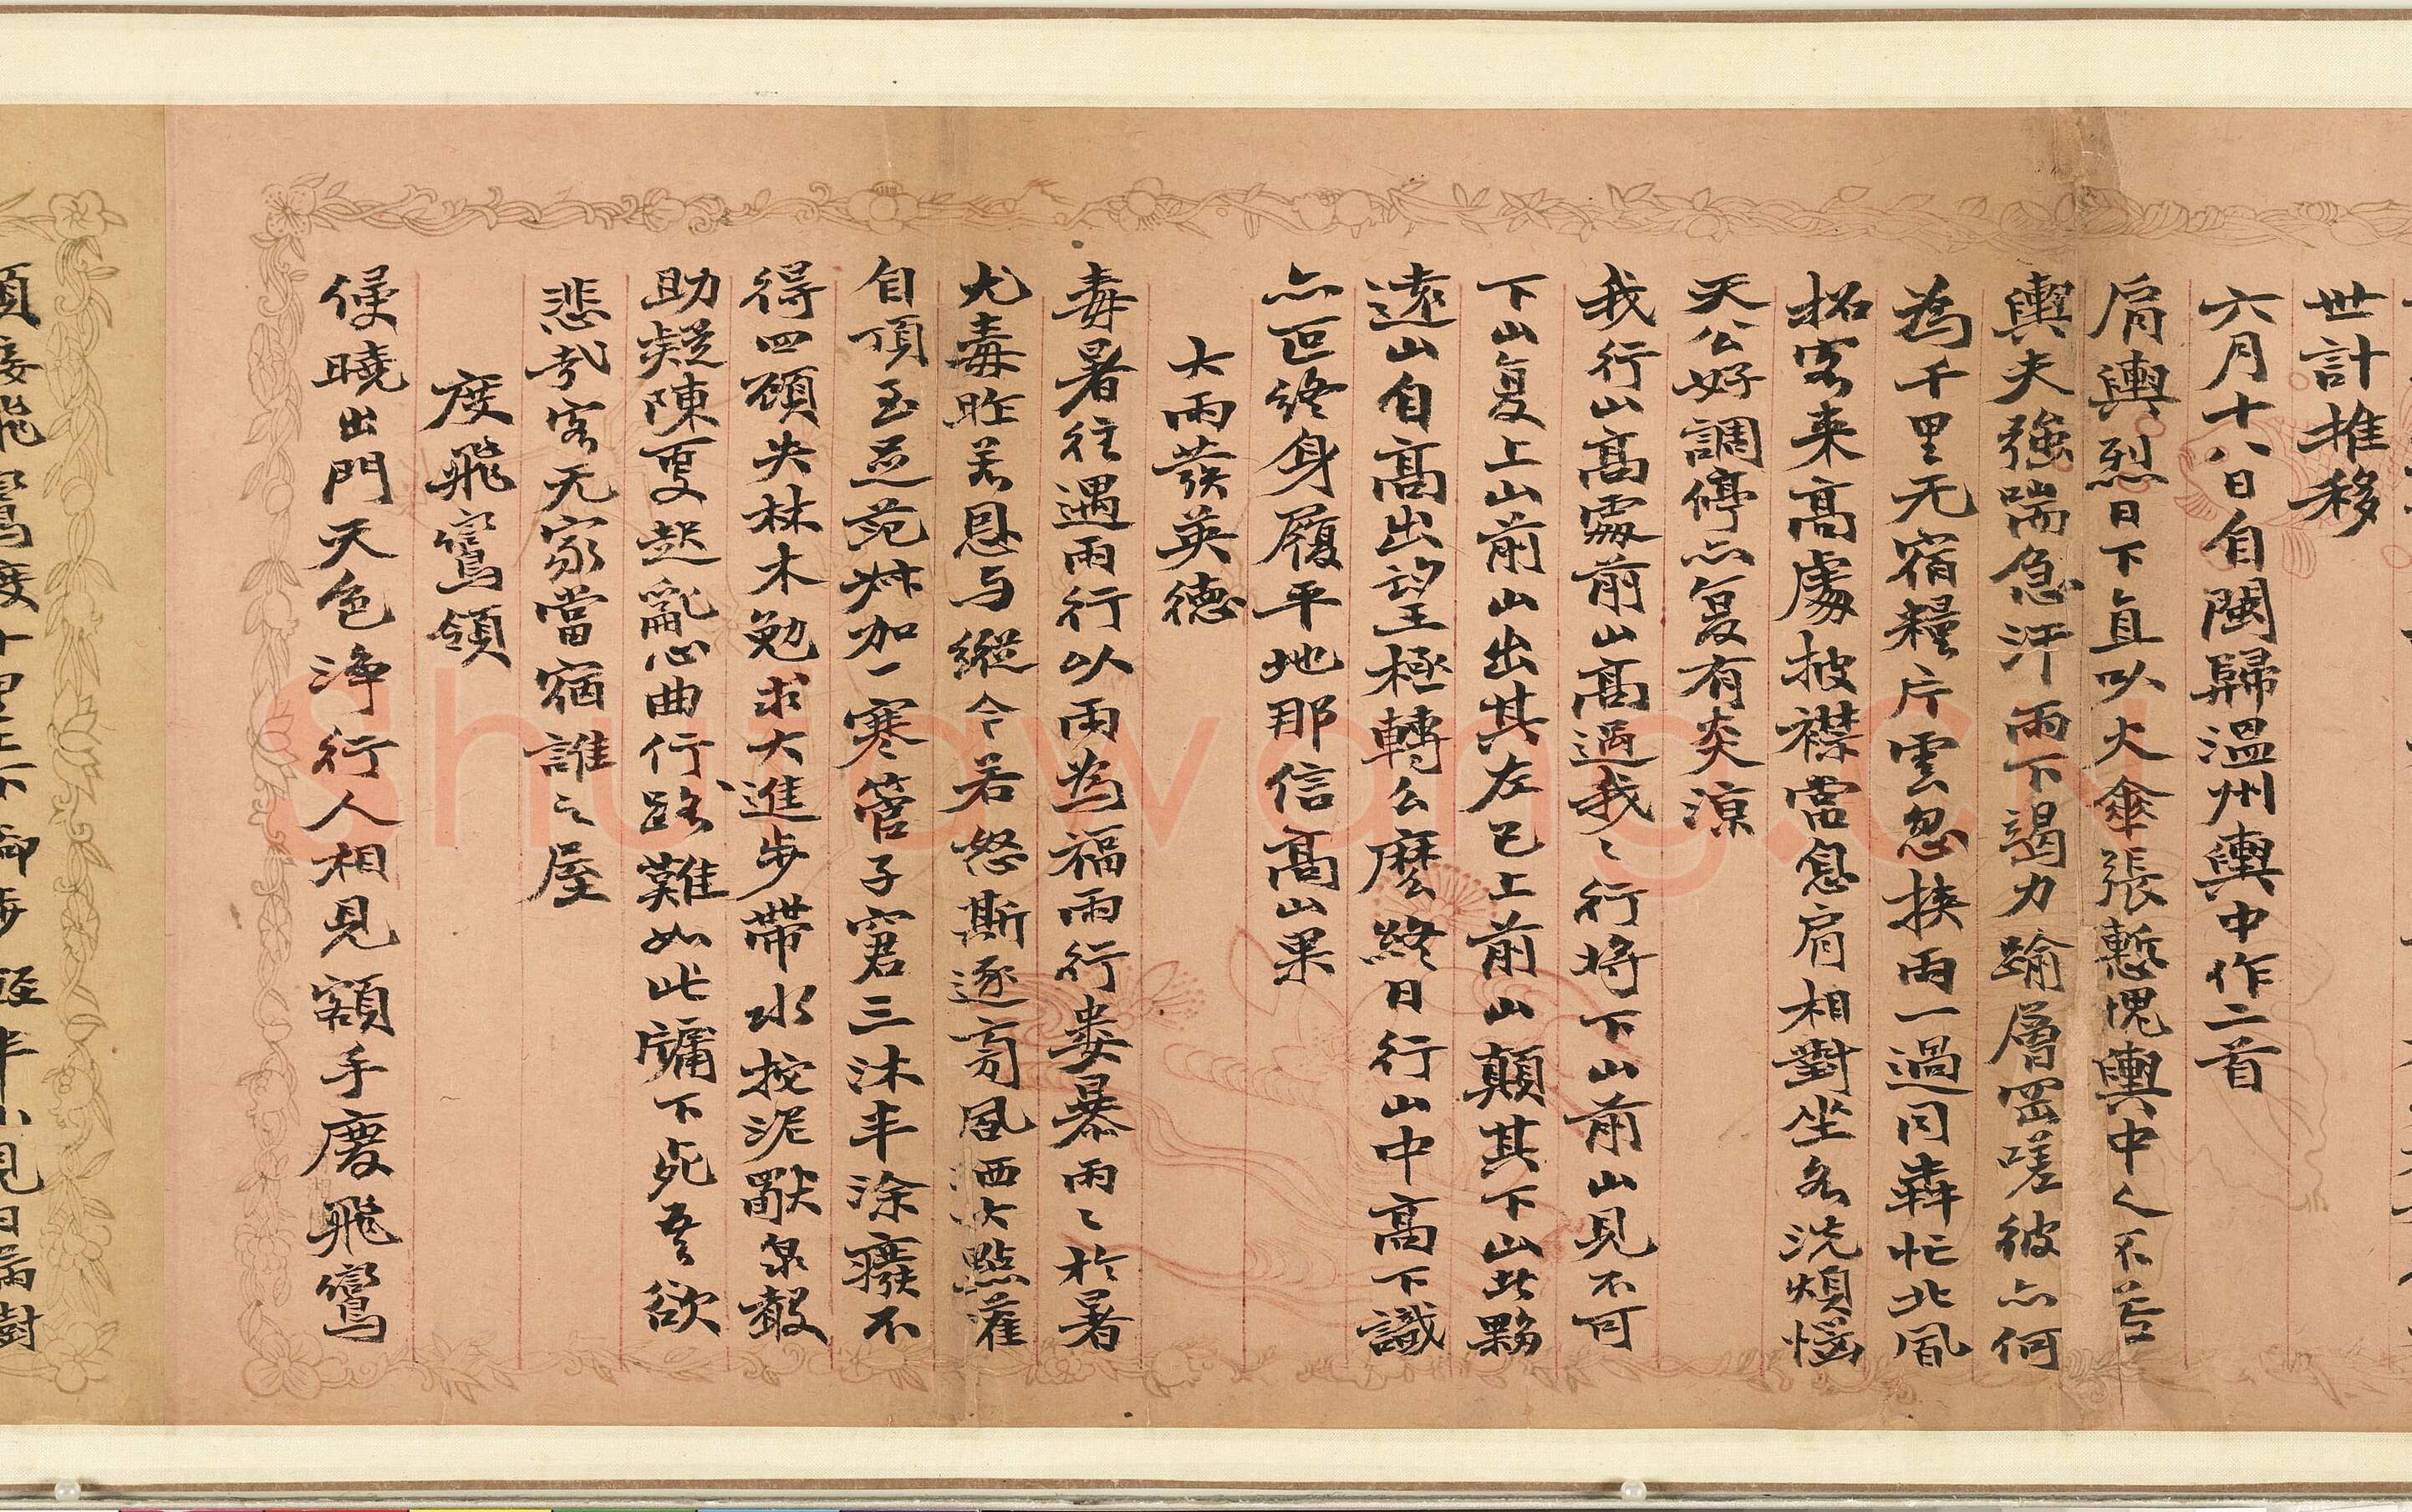 世計推移
六月十八日自閩歸溫州輿中作二首
肩輿烈日下直以火傘張慙愧輿中人不若
輿夫強喘急汗雨下竭力踰層岡嗟彼亦何
為千里无宿糧片雲忽挾雨一過同犇忙北風
招客来高處披襟當息肩相對坐各洗煩惱
天公好調停亦复有炎涼
我行山高處前山高過我〻行將下山前山見不可
下山复上山前山出其左已上前山顛其下山此夥
遠山自高出望王極轉么麼終日行山中高下識
亦叵終身履平地那信高山果
大雨發英德
毒暑往遇雨行以雨為福雨行婁暴雨〻於暑
尤毒昨羌恩与縱今若怒斯逐旁風洒次點灌
自頂至忢范叔加一寒管子窘三沐丰涂癈不
得四顧失林木勉求大進步帶水挖泥獸泉聲
助凝陳戛起亂心曲行路難如此牗下死吾欲
悲哉客无家當宿誰〻屋
度飛鸞領
侵曉出門天色淨行人相見額手慶飛鸞
shufawang.cn